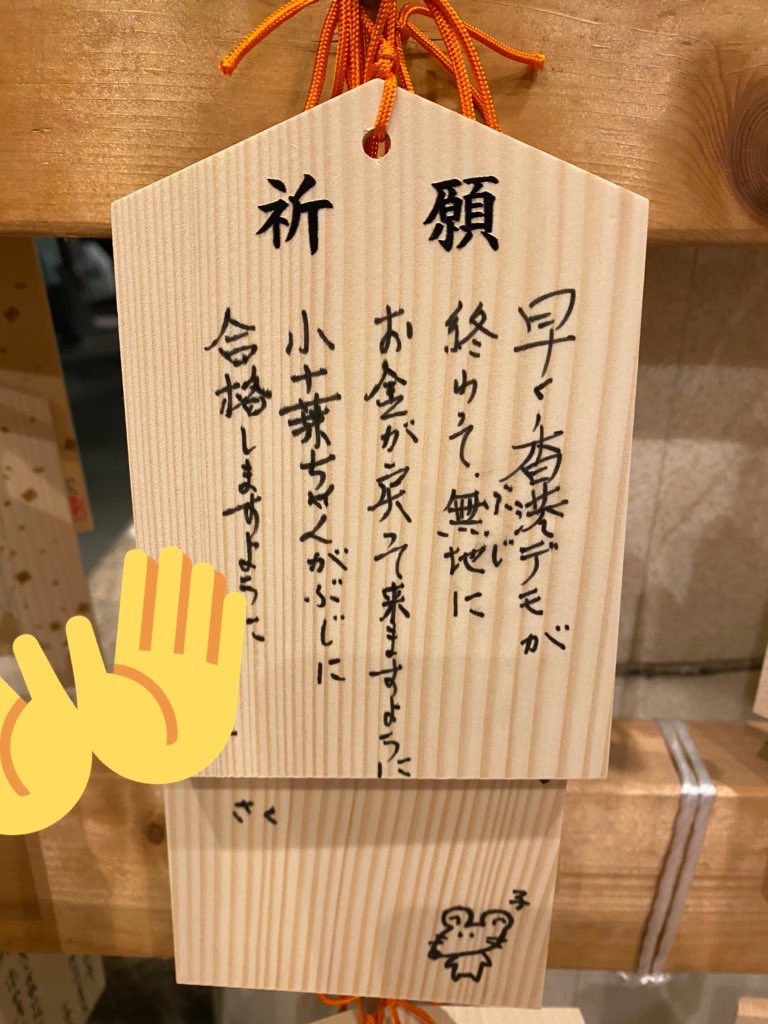 祈願
早く、香港デモが
終わって、無地に
ぶじ
お金が戻って来ますように
小十妹ちゃんがぶじに
合格しますように
さく
子